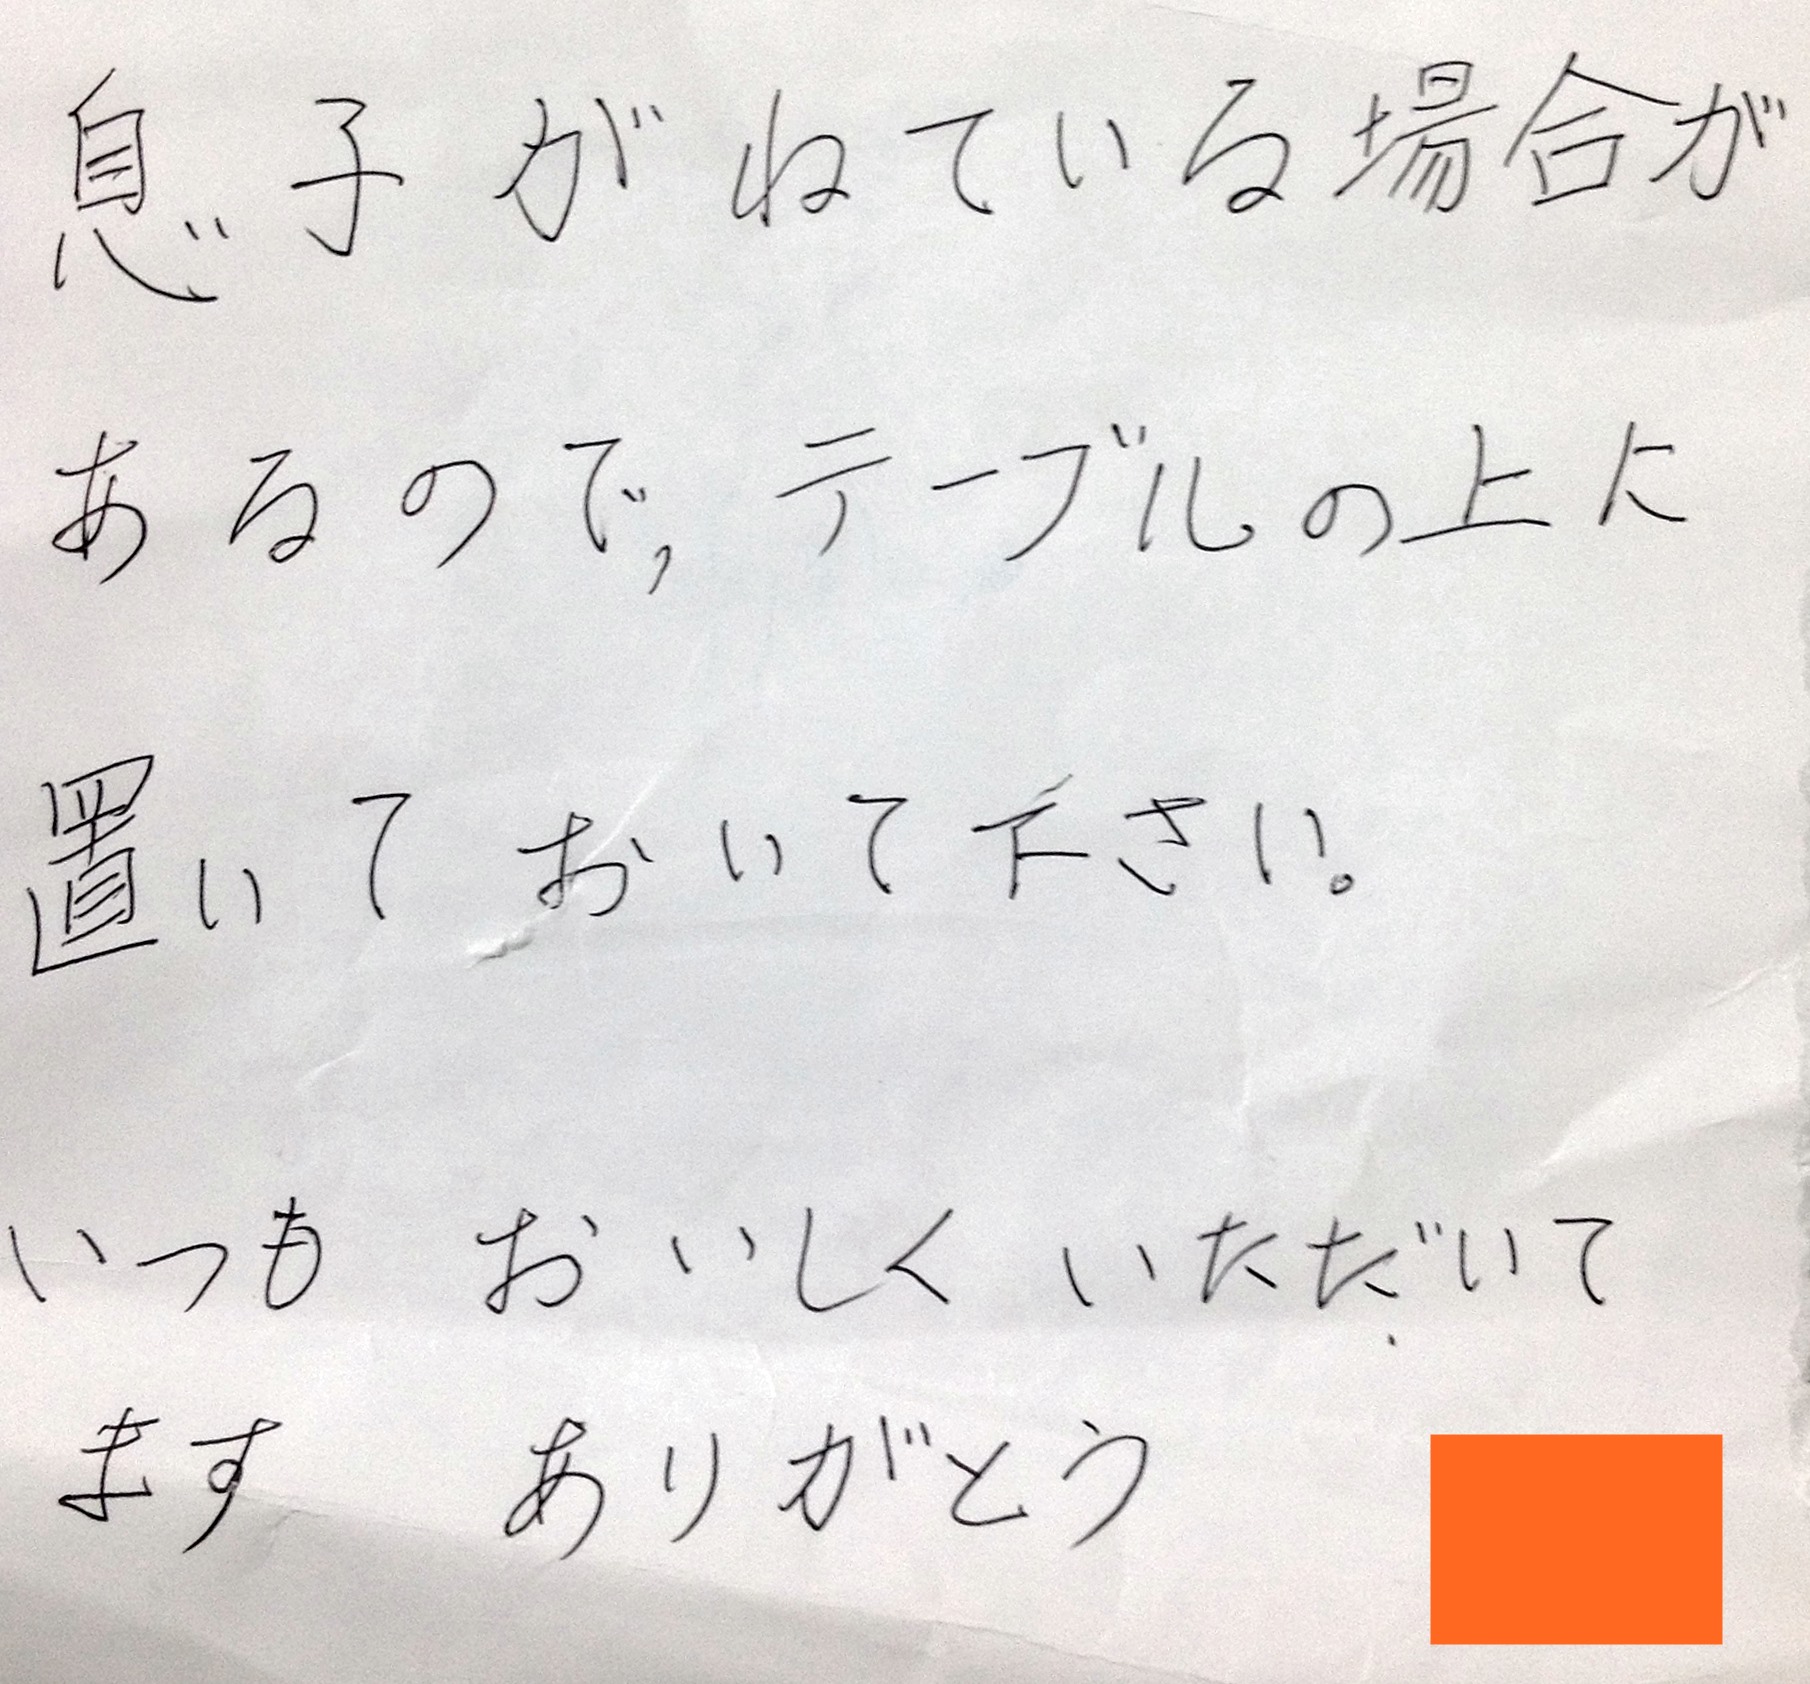 息子がねている場合が
あるので,テーブルの上に
置いておいて下さい。
いつも おいしくいただいて
ます ありがとう